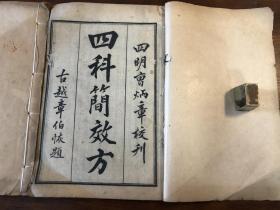 四明曹炳章校刊
四科簡效方
古越章伯恢題